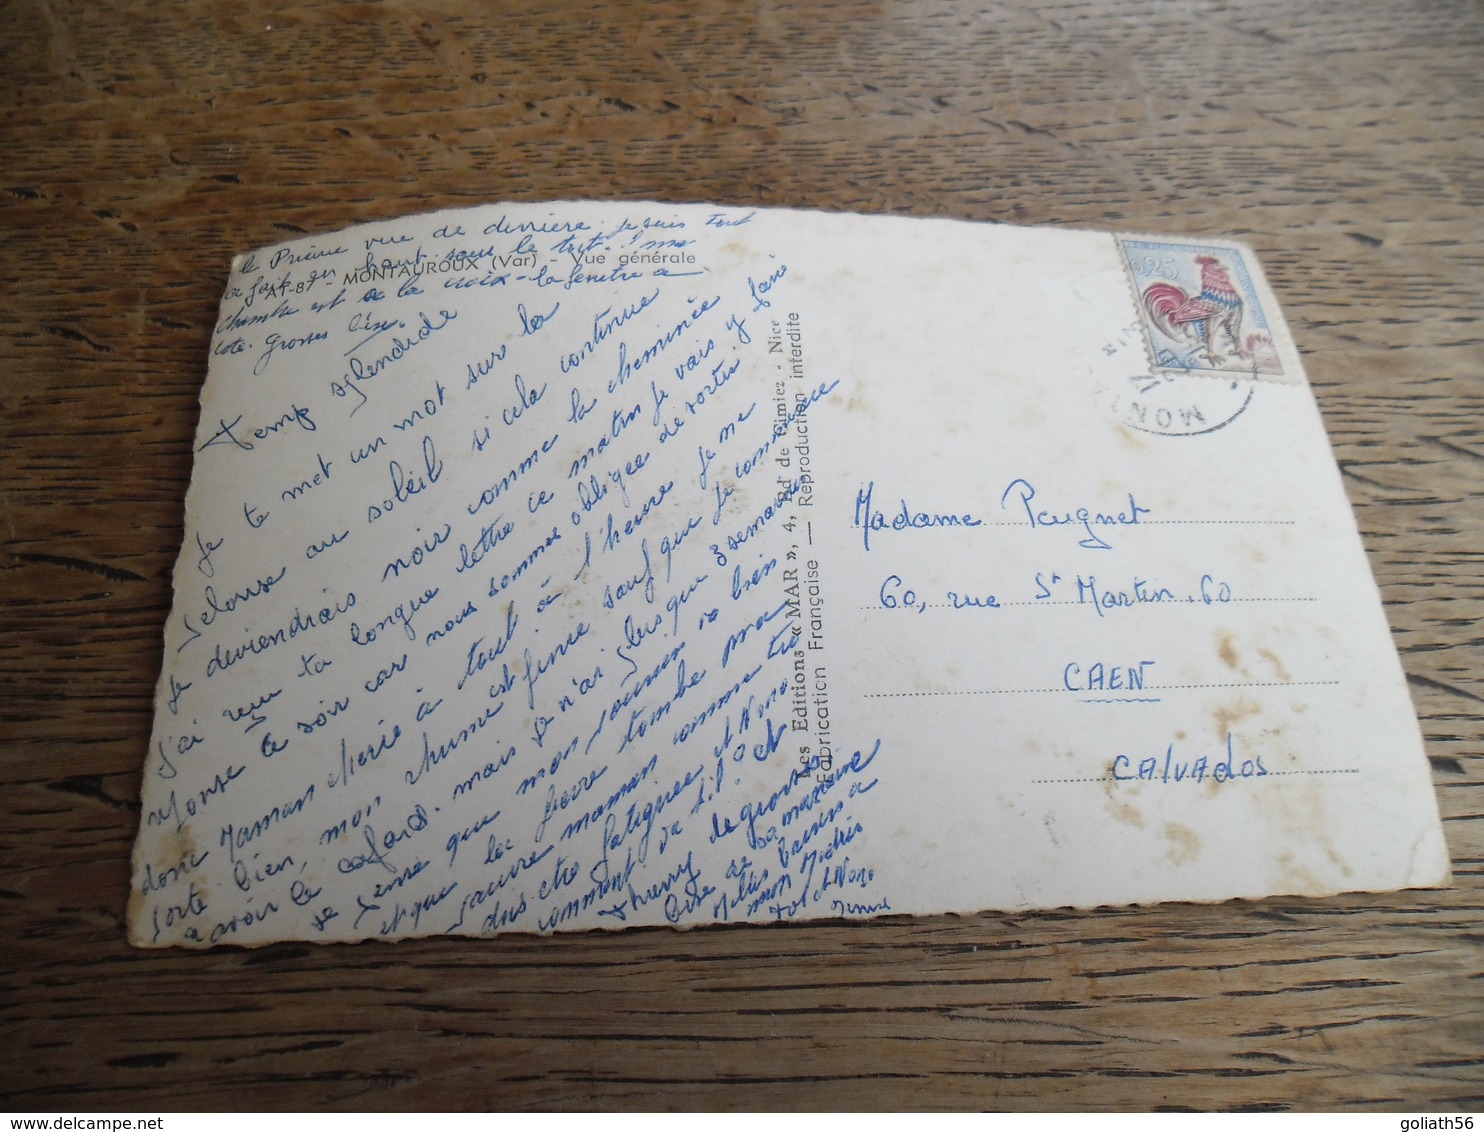 le Prieure vue de derrière. je suis tout
a fait en haut sous le toit. ma
A1-87 - MONTAUROUX (Var) - Vue générale
chambre est a la croix - la fenetre a
cote. Grosses bises.
Temp splendide
Je te met un mot sur la
pelouse au soleil si cela continue
je deviendrais noir comme la cheminée
J'ai reçu ta longue lettre ce matin je vais y faire
réponse ce soir car nous sommes obligée de sortir
donc Maman cherie à tout à l'heure je me
porte bien, mon rhume est finie sauf que je commence
a avoir le cafard. mais je n'ai plus que 3 semaines
et que la fievre tombe ma
pauvre maman comme tu
dois etre fatiguee et Nono
comment va t'il? et
Thierry de grosses
bise de ta
mon
Toi et Nono
Les Editions « MAR », 4, Bd de Cimiez - Nice
Fabrication Française — Reproduction interdite
0,25
MONTA
Madame Peugnet
60, rue St Martin. 60
CAEN
CALVADOS
goliath56